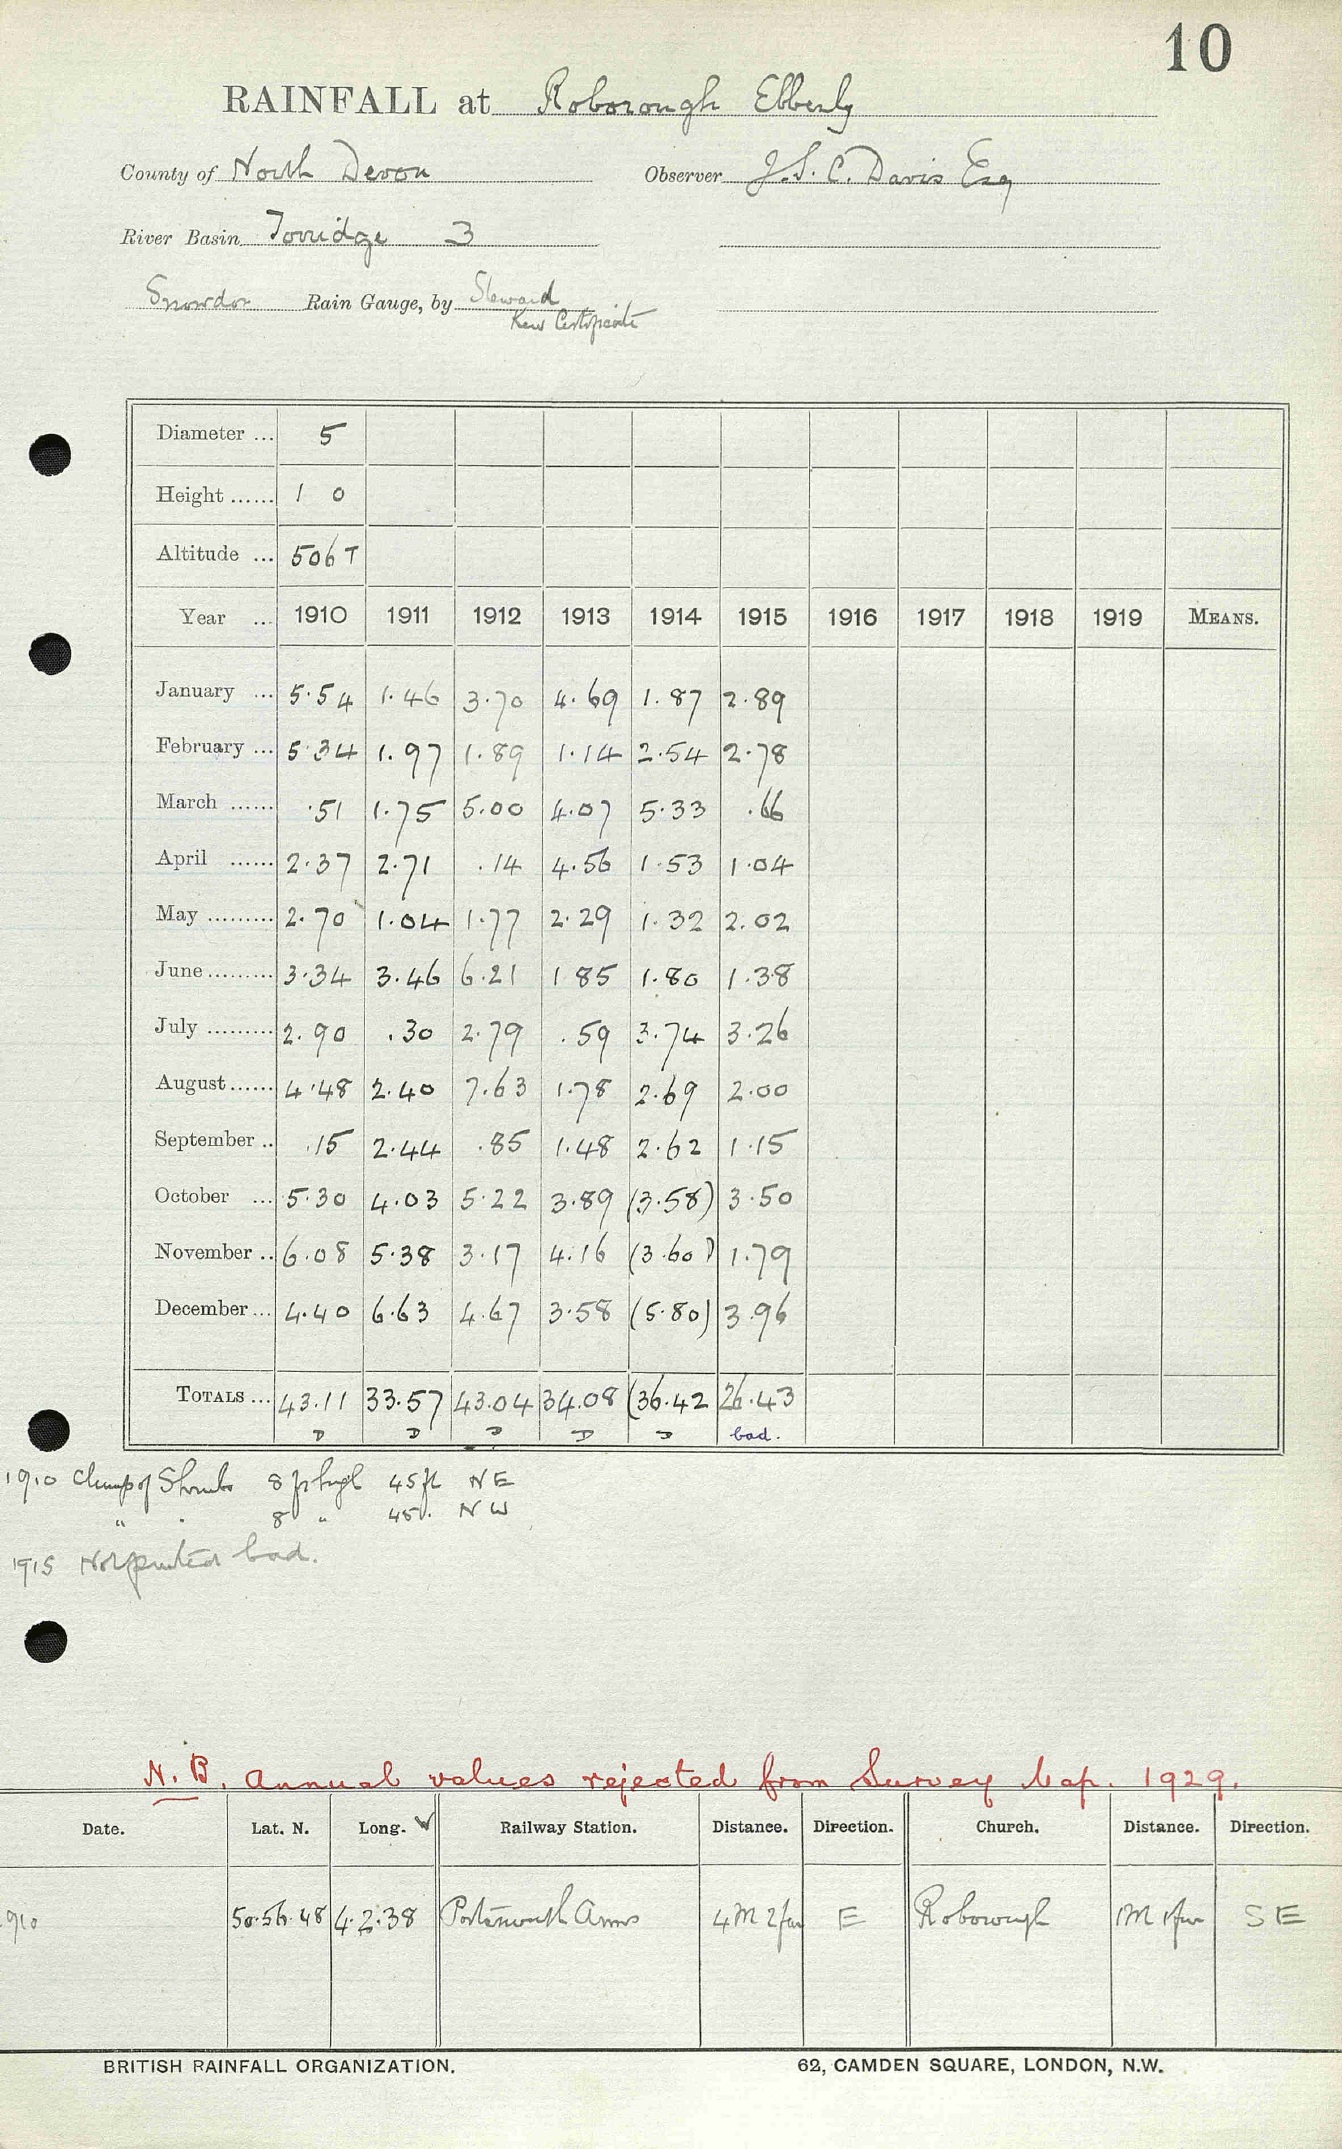 10
RAINFALL at Roborough Ebberly
County of North Devon Observer J. S. C. Davis Esq
River Basin Torridge 3
Snowdon Rain Gauge, by Steward
Kew Certificate
Diameter ... 5
Height ...... 1 0
Altitude ... 506 T
Year ... 1910 1911 1912 1913 1914 1915 1916 1917 1918 1919 MEANS.
January ... 5.54 1.46 3.70 4.69 1.87 2.89
February ... 5.34 1.97 1.89 1.14 2.54 2.78
March ...... .51 1.75 5.00 4.07 5.33 .66
April ...... 2.37 2.71 .14 4.56 1.53 1.04
May ......... 2.70 1.04 1.77 2.29 1.32 2.02
June ......... 3.34 3.46 6.21 1 85 1.80 1.38
July ......... 2.90 .30 2.79 .59 3.74 3.26
August ...... 4.48 2.40 7.63 1.78 2.69 2.00
September .. .15 2.44 .85 1.48 2.62 1.15
October ... 5.30 4.03 5.22 3.89 (3.58) 3.50
November .. 6.08 5.38 3.17 4.16 (3.60) 1.79
December ... 4.40 6.63 4.67 3.58 (5.80) 3.96
TOTALS ... 43.11 33.57 43.04 34.08 (36.42 26.43
D D D D D bad.
1910 Clump of Shrubs 8 ft high 45 ft NE
" " 8 " 45 . NW
1915 Not printed bad.
N.B. Annual values rejected from Survey Map. 1929.
Date. Lat. N. Long. W Railway Station. Distance. Direction. Church. Distance. Direction.
1910 50.56.48 4.2.38 Portsmouth Arms 4M 2fur E Roborough 1M 1fur SE
BRITISH RAINFALL ORGANIZATION. 62, CAMDEN SQUARE, LONDON, N.W.